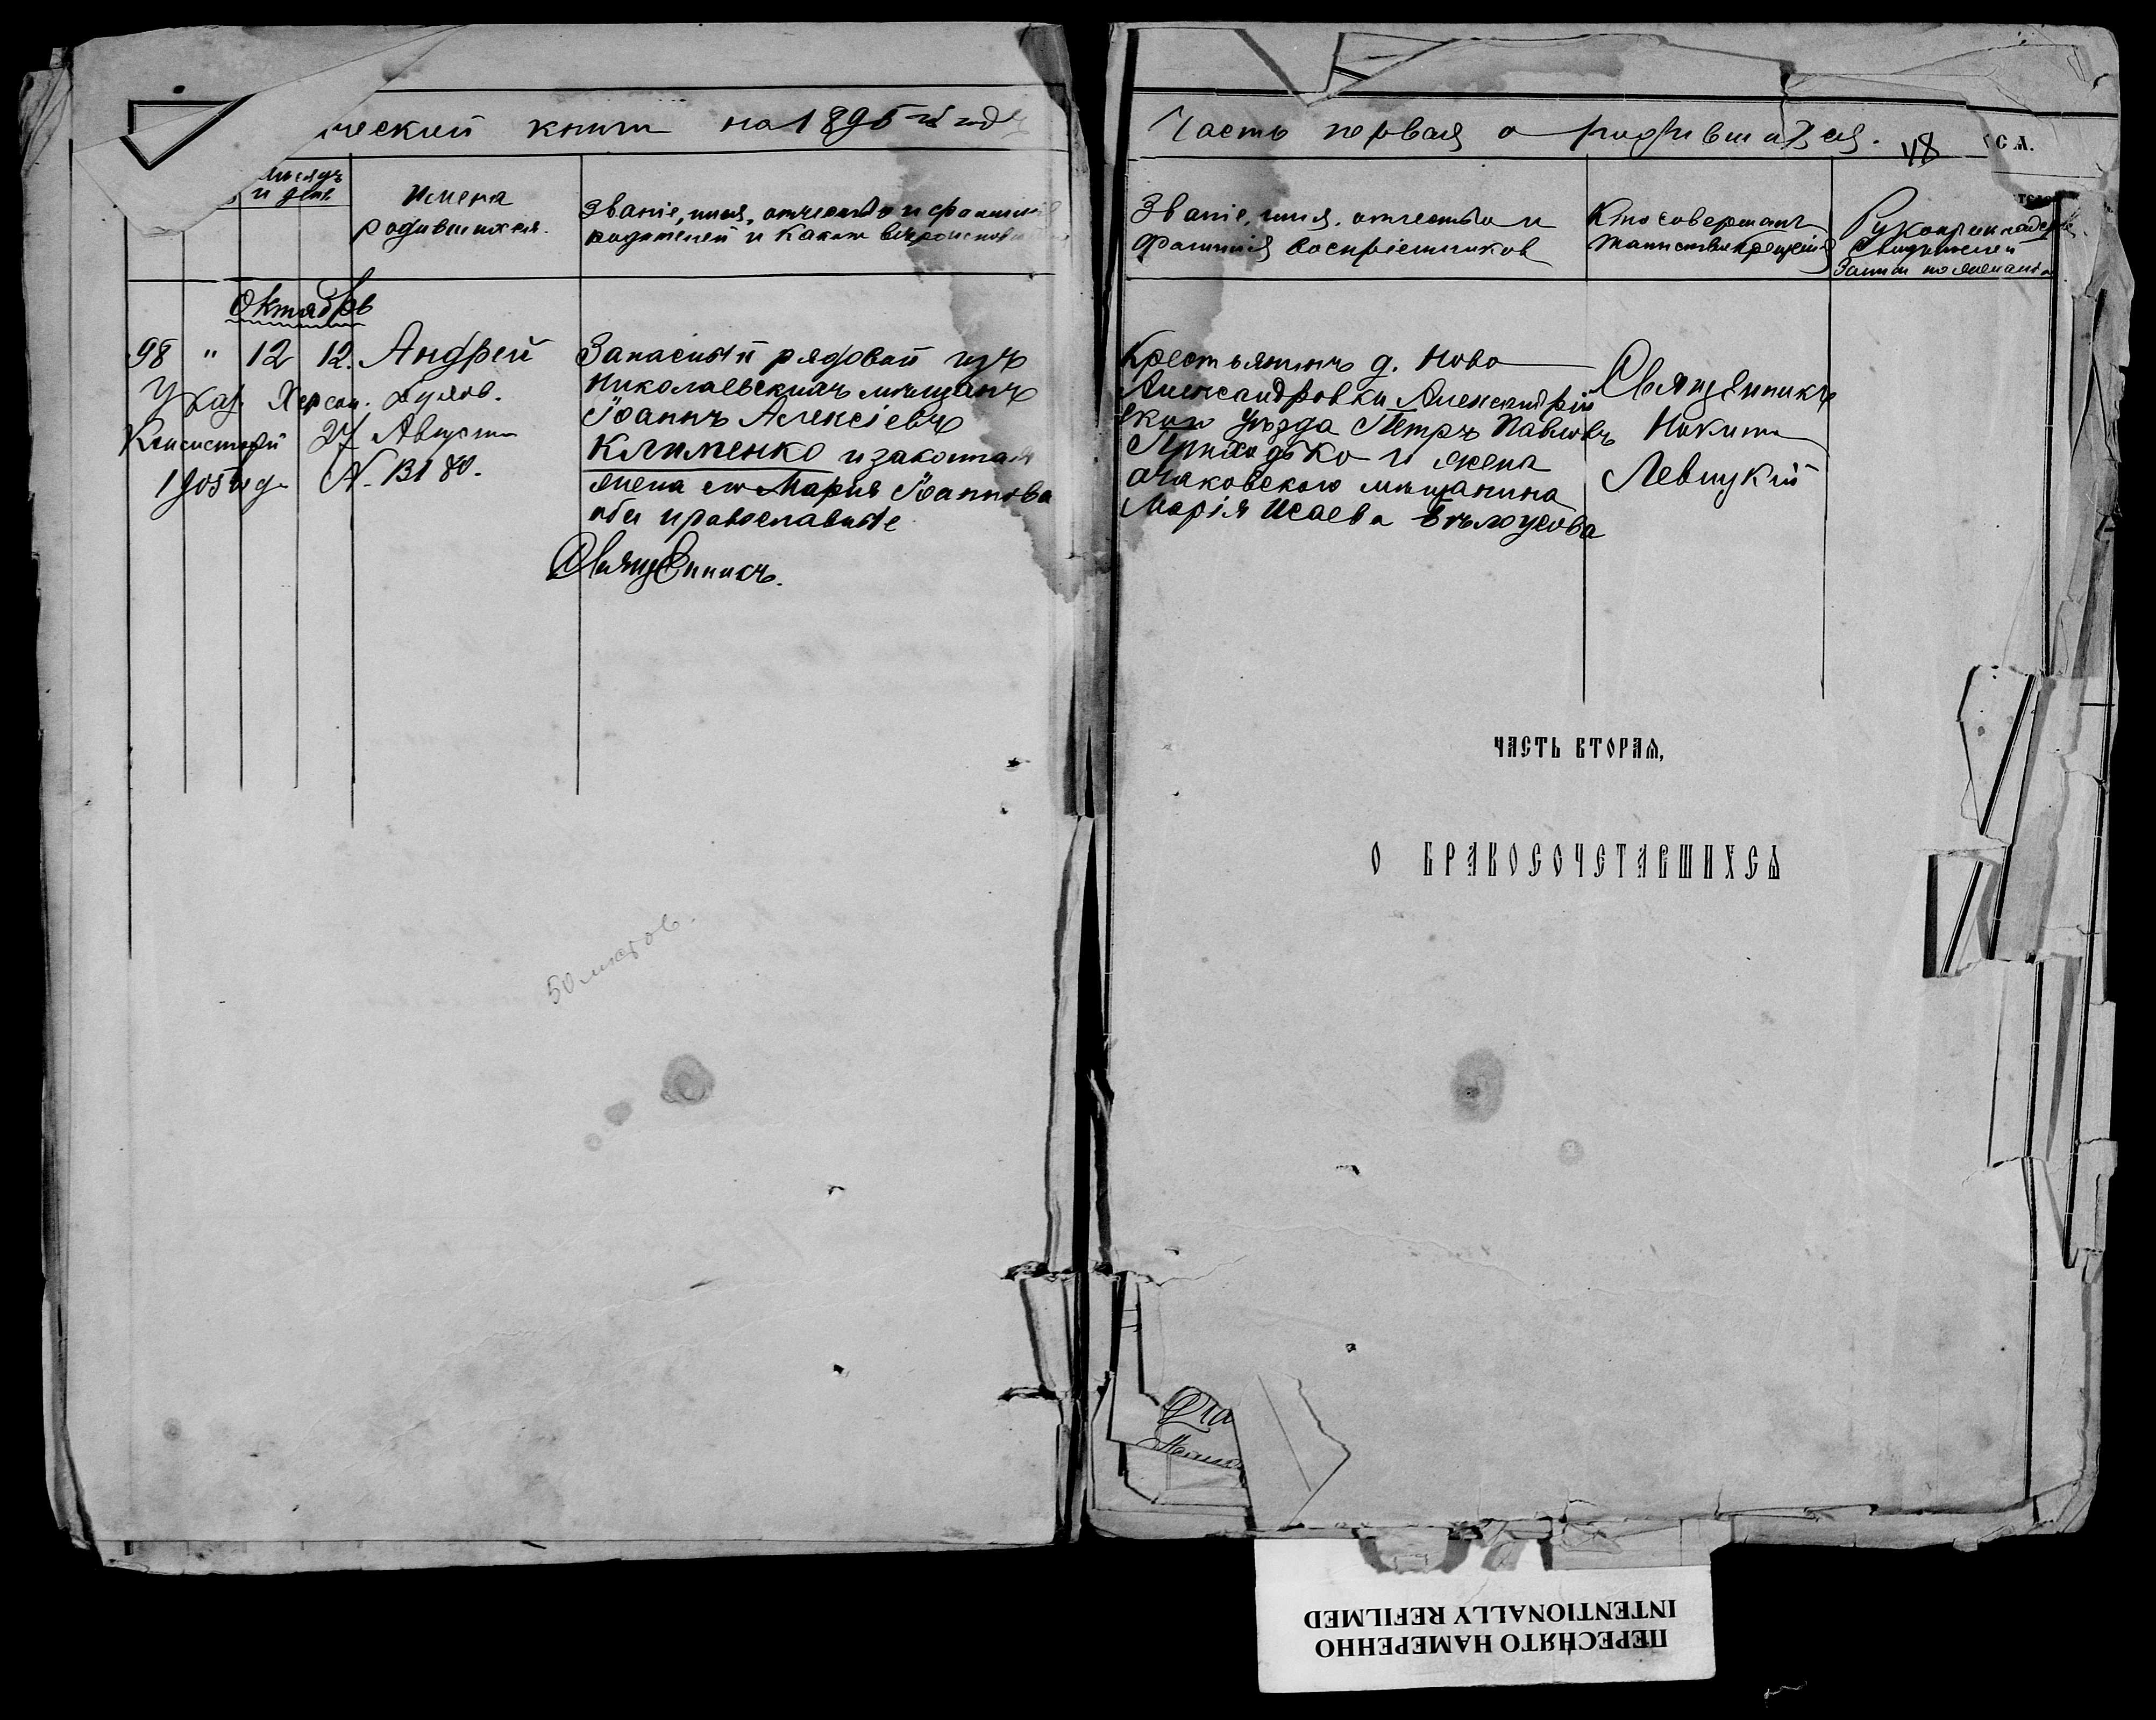 ческий книги на 1895 й годъ
мѣсяцъ
и день
Имена
родившихся.
Званіе, имя, отчество и фамилія
родителей и какого вѣроисповѣ
Октябрь
98 " 12 12. Андрей
Запасный рядовой изъ
Указ Херсон. Духов.
Николаевскихъ мѣщанъ
Консисторіи 27 Августа
Іоаннъ Алексіевъ
1905 год N. 13180.
Клименко и законная
жена его Марія Іоаннова
оба православные
Священникъ.
50 листов.
Часть первая о родившихся. 48
СЯ.
Званіе, имя, отчество и
фамилія воспріемниковъ
Кто совершалъ
таинство крещенія
Рукоприкладство
свидѣтелей
записи по желанію
Крестьянинъ д. Ново
Александровки Александрій
скаго уѣзда Петръ Павловъ
Приходько и жена
очаковского мѣщанина
Марія Исаева Бѣлоусова
Священникъ
Никита
Левицкій
ЧАСТЬ ВТОРАЯ,
О БРАКОСОЧЕТАВШИХСЯ
ПЕРЕСНЯТО НАМЕРЕННО
INTENTIONALLY REFILMED